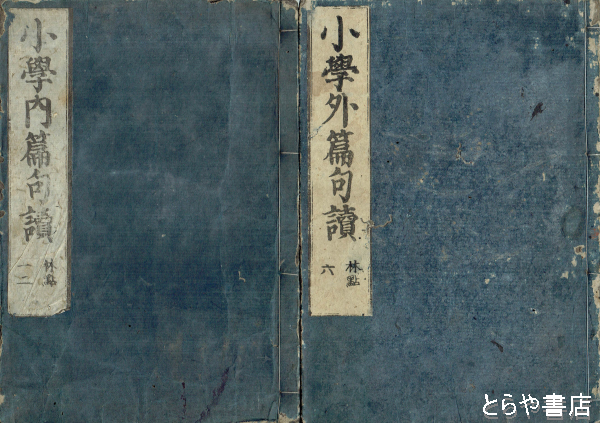 小學內篇句讀
林點
一二
小學外篇句讀
林點
六
とらや書店